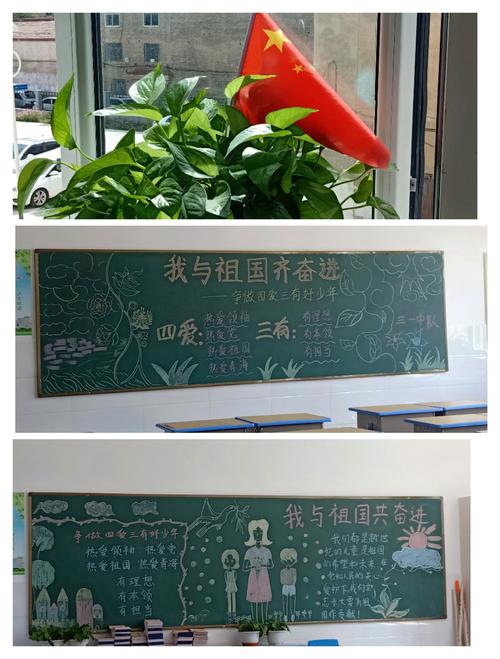 我与祖国齐奋进
——争做四爱三有好少年
四爱:
热爱领袖
热爱党
热爱祖国
热爱青海
三有:
有理想
有本领
有担当
三一中队
争做四爱三有好少年
热爱领袖 热爱党
热爱祖国 热爱青海
有理想
有本领
有担当
我与祖国共奋进
我们都是新世
纪的儿童是祖国
的希望和未来 在
党和人民的关心
爱护下我们立
志长大要为祖
国作贡献!